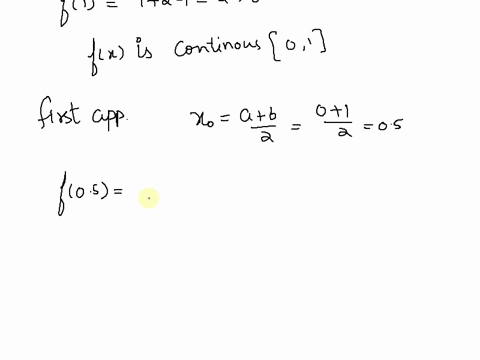 f(1) = 1+2-1 = 2 > 0
f(x) is Continous [0,1]
first app. x₀ = a+b/2 = 0+1/2 = 0.5
f(0.5) =